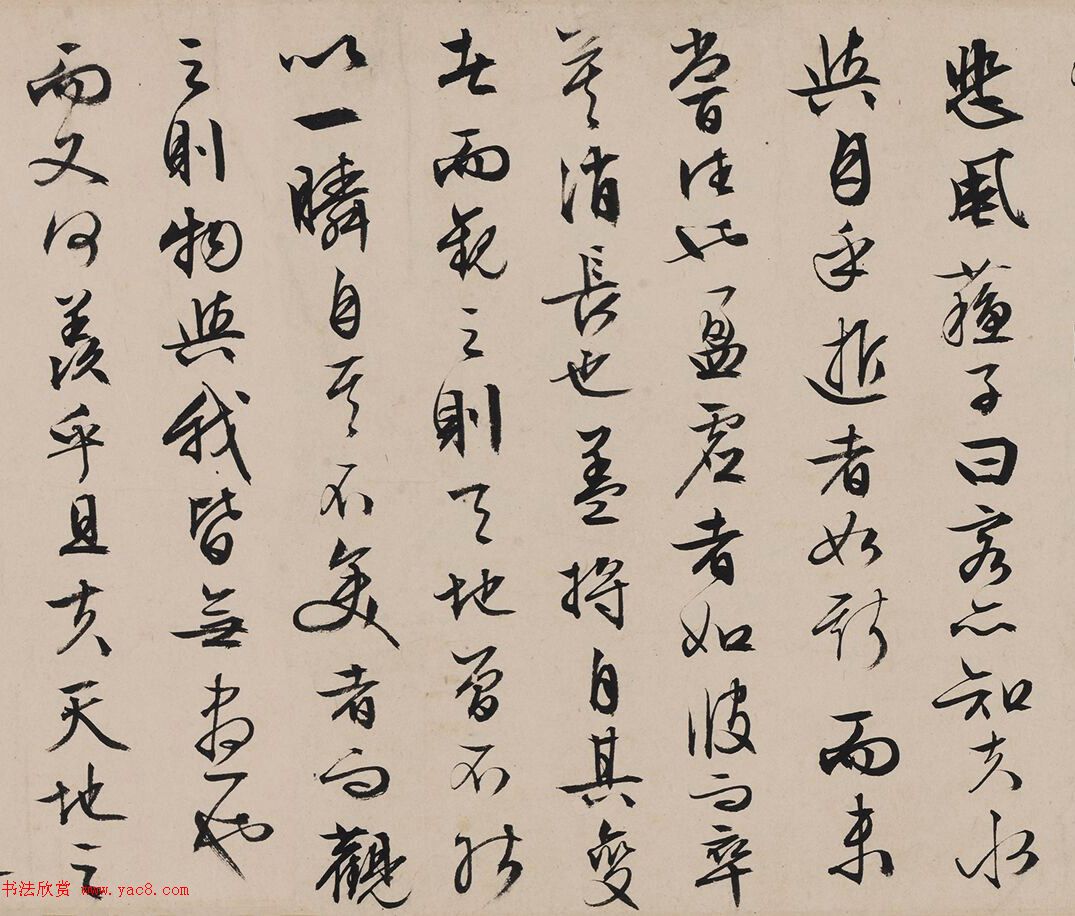 悲風蘓子曰客亦知夫水
與月乎逝者如斯而未
嘗往也盈虛者如彼而卒
莫消長也盖將自其變
者而觀之則天地曾不能
以一瞬自其不變者而觀
之則物與我皆無盡也
而又何羨乎且夫天地之
书法欣赏 www.yac8.com